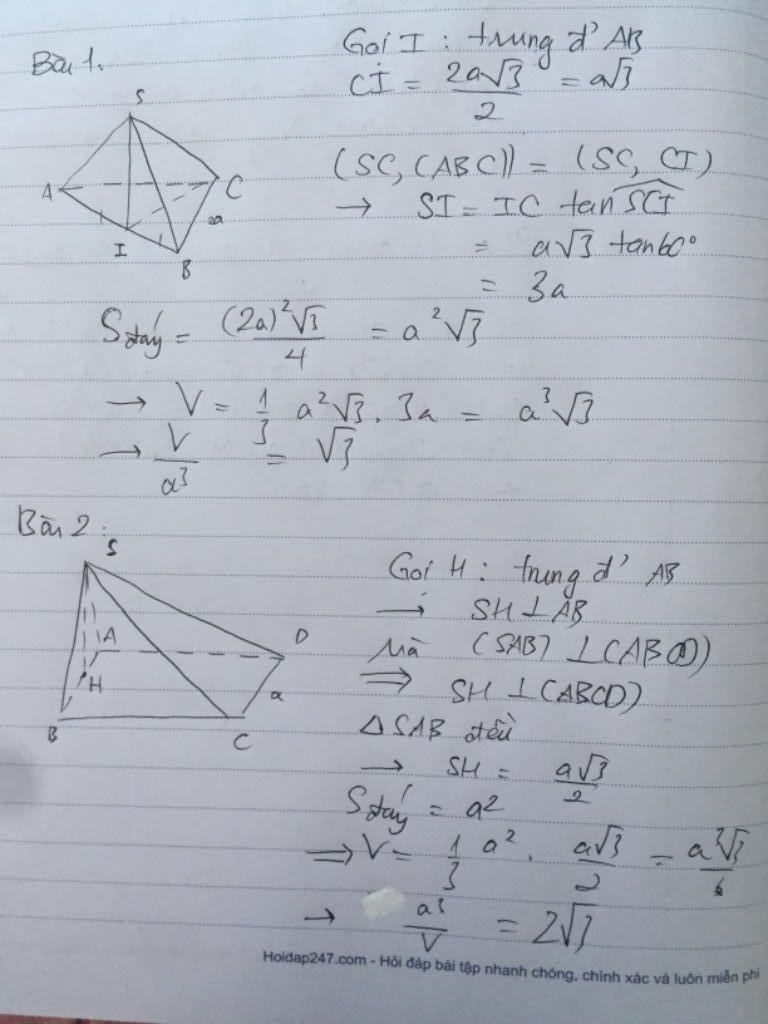 Bài 1.
Gọi I : trung đ' AB
CI = 2a√3/2 = a√3
S
A
C
I
B
2a
(SC, (ABC)) = (SC, CI)
→ SI = IC tan SCI
= a√3 tan60°
= 3a
Sđáy = (2a)²√3/4 = a²√3
→ V = 1/3 a²√3 . 3a = a³√3
→ V/a³ = √3
Bài 2 :
S
A
D
H
a
B
C
Gọi H : trung đ' AB
→ SH ⊥ AB
Mà (SAB) ⊥ (ABCD)
⇒ SH ⊥ (ABCD)
Δ SAB đều
→ SH = a√3/2
Sđáy = a²
⇒ V = 1/3 a² . a√3/2 = a³√3/6
→ a³/V = 2√3
Hoidap247.com - Hỏi đáp bài tập nhanh chóng, chính xác và luôn miễn phí